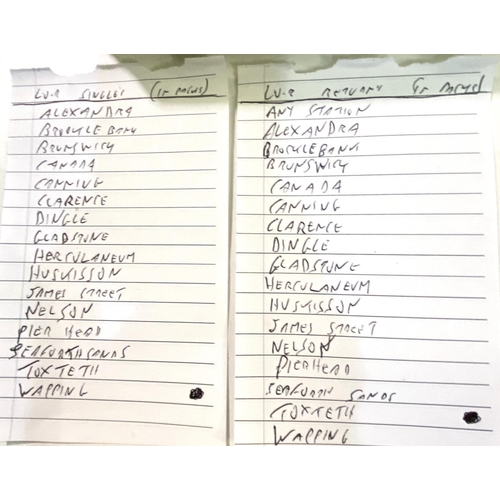 LV-R SINGLES (IN PACKS)
ALEXANDRA
BROCKLEBANK
BRUNSWICK
CANADA
CANNING
CLARENCE
DINGLE
GLADSTONE
HERCULANEUM
HUSKISSON
JAMES STREET
NELSON
PIER HEAD
SEAFORTH SANDS
TOXTETH
WAPPING
LV-R RETURNS (IN PACKS)
ANY STATION
ALEXANDRA
BROCKLEBANK
BRUNSWICK
CANADA
CANNING
CLARENCE
DINGLE
GLADSTONE
HERCULANEUM
HUSKISSON
JAMES STREET
NELSON
PIERHEAD
SEAFORTH SANDS
TOXTETH
WAPPING